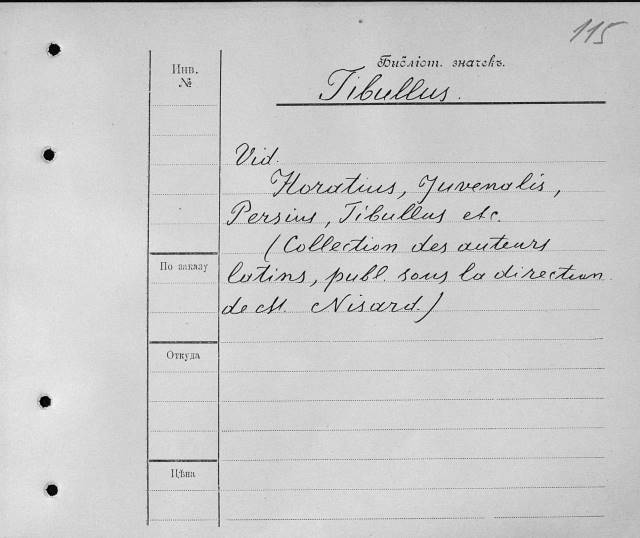 115
Инв.
№
Библіот. значекъ.
Tibullus.
Vid.
Horatius, Juvenalis,
Persius, Tibullus etc.
(Collection des auteurs
latins, publ. sous la direction
de M. Nisard.)
По заказу
Откуда
Цѣна